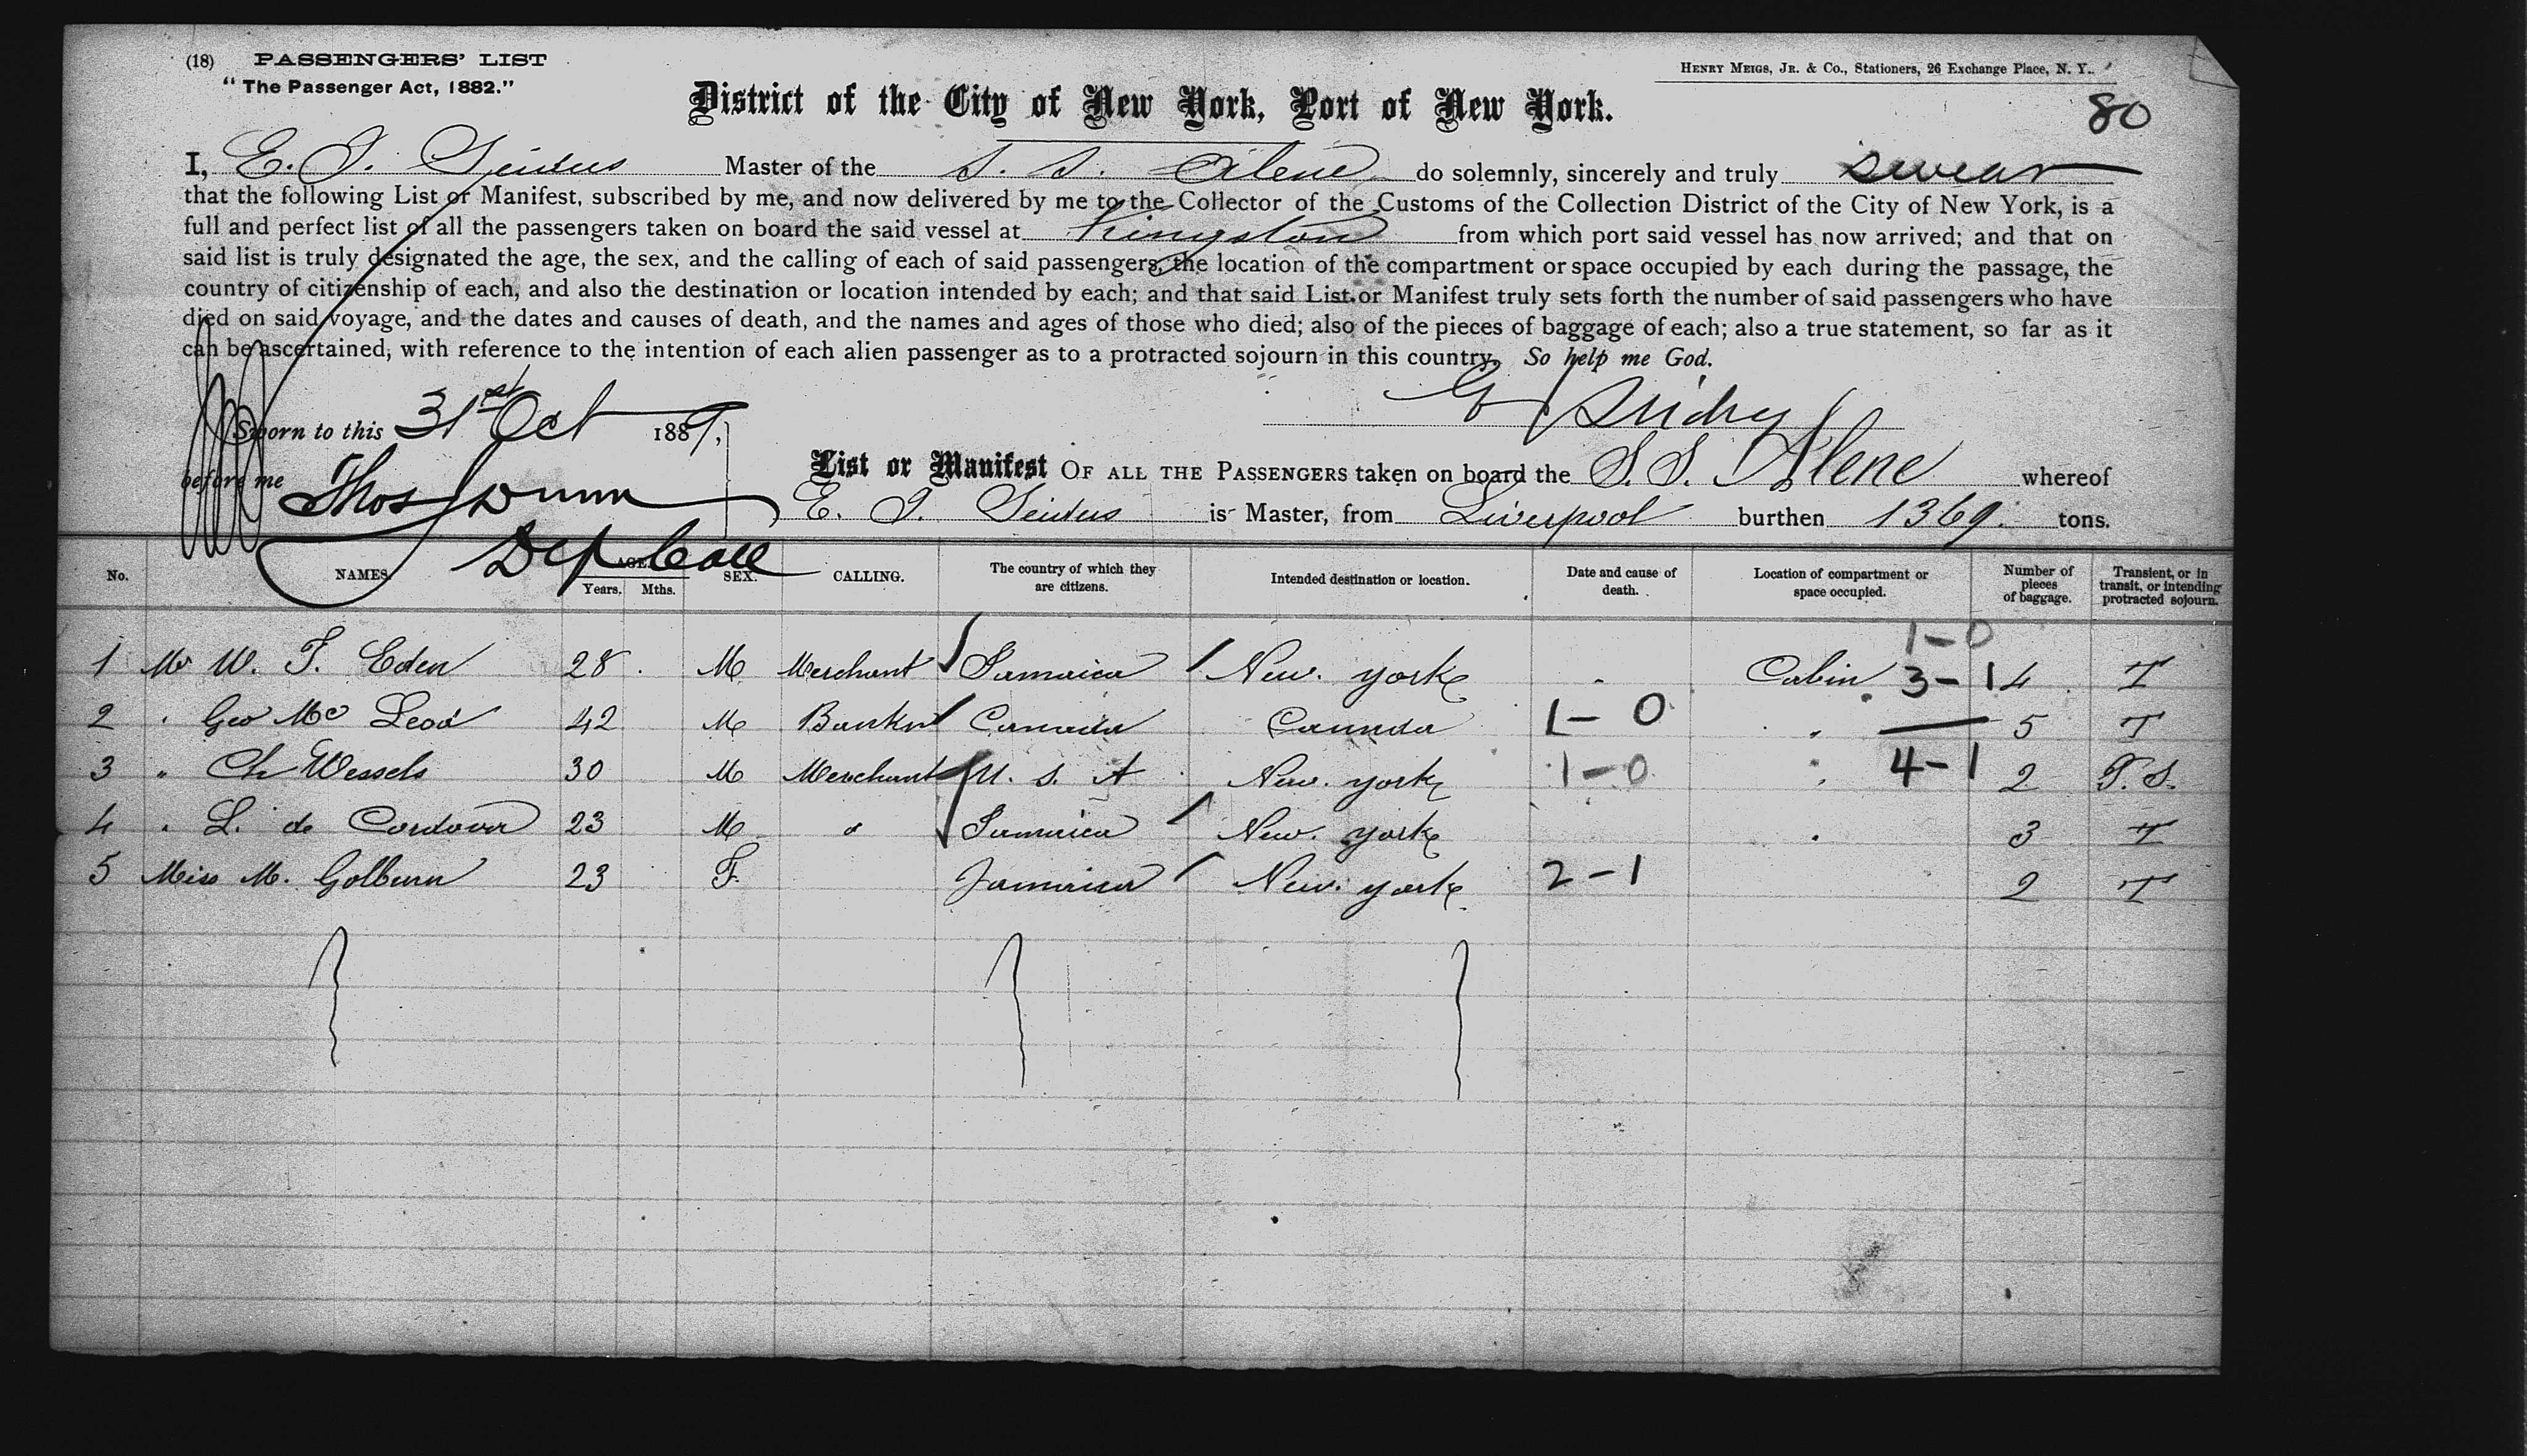 (18) PASSENGERS' LIST
"The Passenger Act, 1882."
HENRY MEIGS, JR. & Co., Stationers, 26 Exchange Place, N. Y.
District of the City of New York, Port of New York.
80
I, E. J. Master of the S. S. Alene do solemnly, sincerely and truly swear
that the following List or Manifest, subscribed by me, and now delivered by me to the Collector of the Customs of the Collection District of the City of New York, is a
full and perfect list of all the passengers taken on board the said vessel at Kingston from which port said vessel has now arrived; and that on
said list is truly designated the age, the sex, and the calling of each of said passengers, the location of the compartment or space occupied by each during the passage, the
country of citizenship of each, and also the destination or location intended by each; and that said List or Manifest truly sets forth the number of said passengers who have
died on said voyage, and the dates and causes of death, and the names and ages of those who died; also of the pieces of baggage of each; also a true statement, so far as it
can be ascertained, with reference to the intention of each alien passenger as to a protracted sojourn in this country. So help me God.
Sworn to this 31st Oct 1889,
before me Thos Dunn
Dep Coll
List or Manifest OF ALL THE PASSENGERS taken on board the S. S. Alene whereof
E. J. is Master, from Liverpool burthen 1369. tons.
No. NAMES. AGE. Years. Mths. SEX. CALLING. The country of which they are citizens. Intended destination or location. Date and cause of death. Location of compartment or space occupied. Number of pieces of baggage. Transient, or in transit, or intending protracted sojourn.
1-0
1 Mr W. F. Eden 28 M Merchant Jamaica New. York Cabin 3-1 4 T
2 " Geo Mc Leod 42 M Banker Canada Canada 1-0 " 5 T
3 " Ch Wessels 30 M Merchant U. S. A New. York 1-0 " 4-1 2 P. S.
4 " L. de Cordova 23 M " Jamaica New. York " 3 T
5 Miss M. Golburn 23 F. Jamaica New. York 2-1 2 T